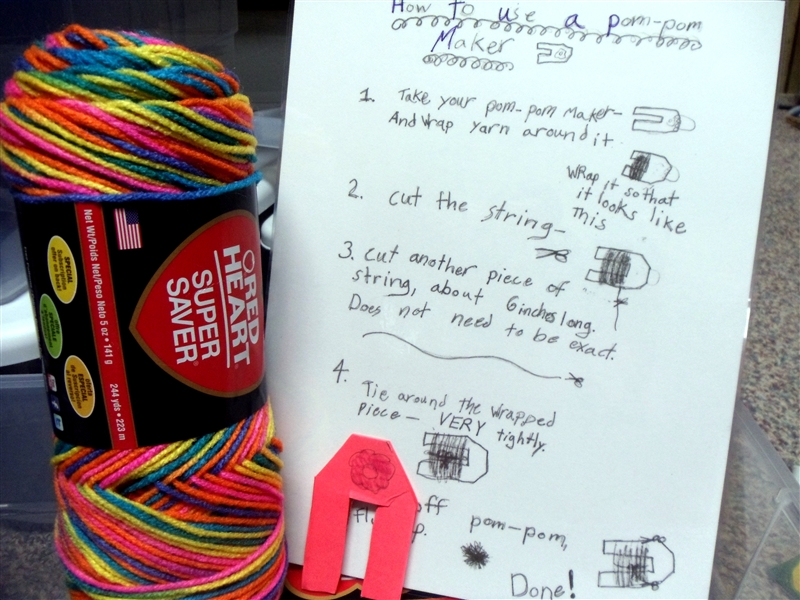 How To use a pom-pom
Maker
1. Take your pom-pom Maker-
And wrap yarn around it
Wrap it so that
it looks like
This
2. cut the string-
3. cut another piece of
string, about 6 inches long.
Does not need to be exact.
4. Tie around the wrapped
piece- VERY tightly.
off
pom-pom,
Done!
RED
HEART
SUPER
SAVER
Net Wt/Poids Net/Peso Neto 5 oz • 141 g
244 yds • 223 m
SPECIAL